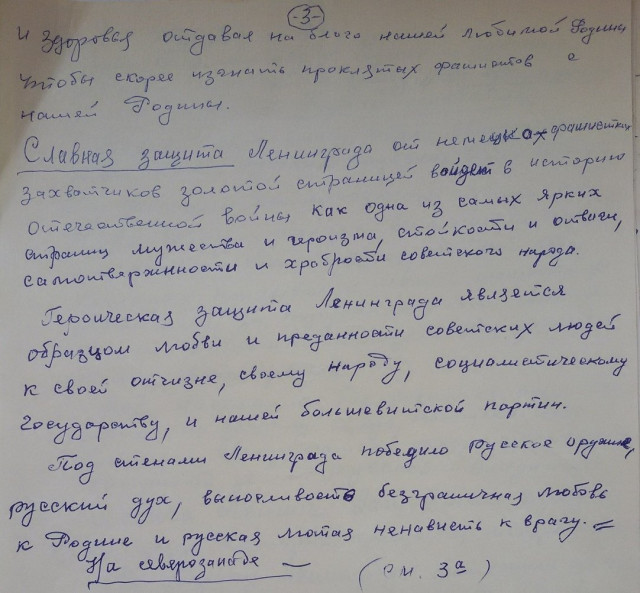 -3-
и здоровья отдавая на благо нашей любимой Родины
чтобы скорее изгнать проклятых фашистов с
нашей Родины.
Славная защита Ленинграда от немецких фашистких
захватчиков золотой страницей войдет в историю
отечественной войны как одна из самых ярких
страниц мужества и героизма, стойкости и отваги,
самотверженности и храбрости советского народа.
Героическая защита Ленинграда является
образцом любви и преданности советских людей
к своей отчизне, своему народу, социалистическому
государству, и нашей большевитской партии.
Под стенами Ленинграда победило русское оружие,
русский дух, выносливость безграничная любовь
к Родине и русская лютая ненависть к врагу. =
На северозападе —
(см. 3а)